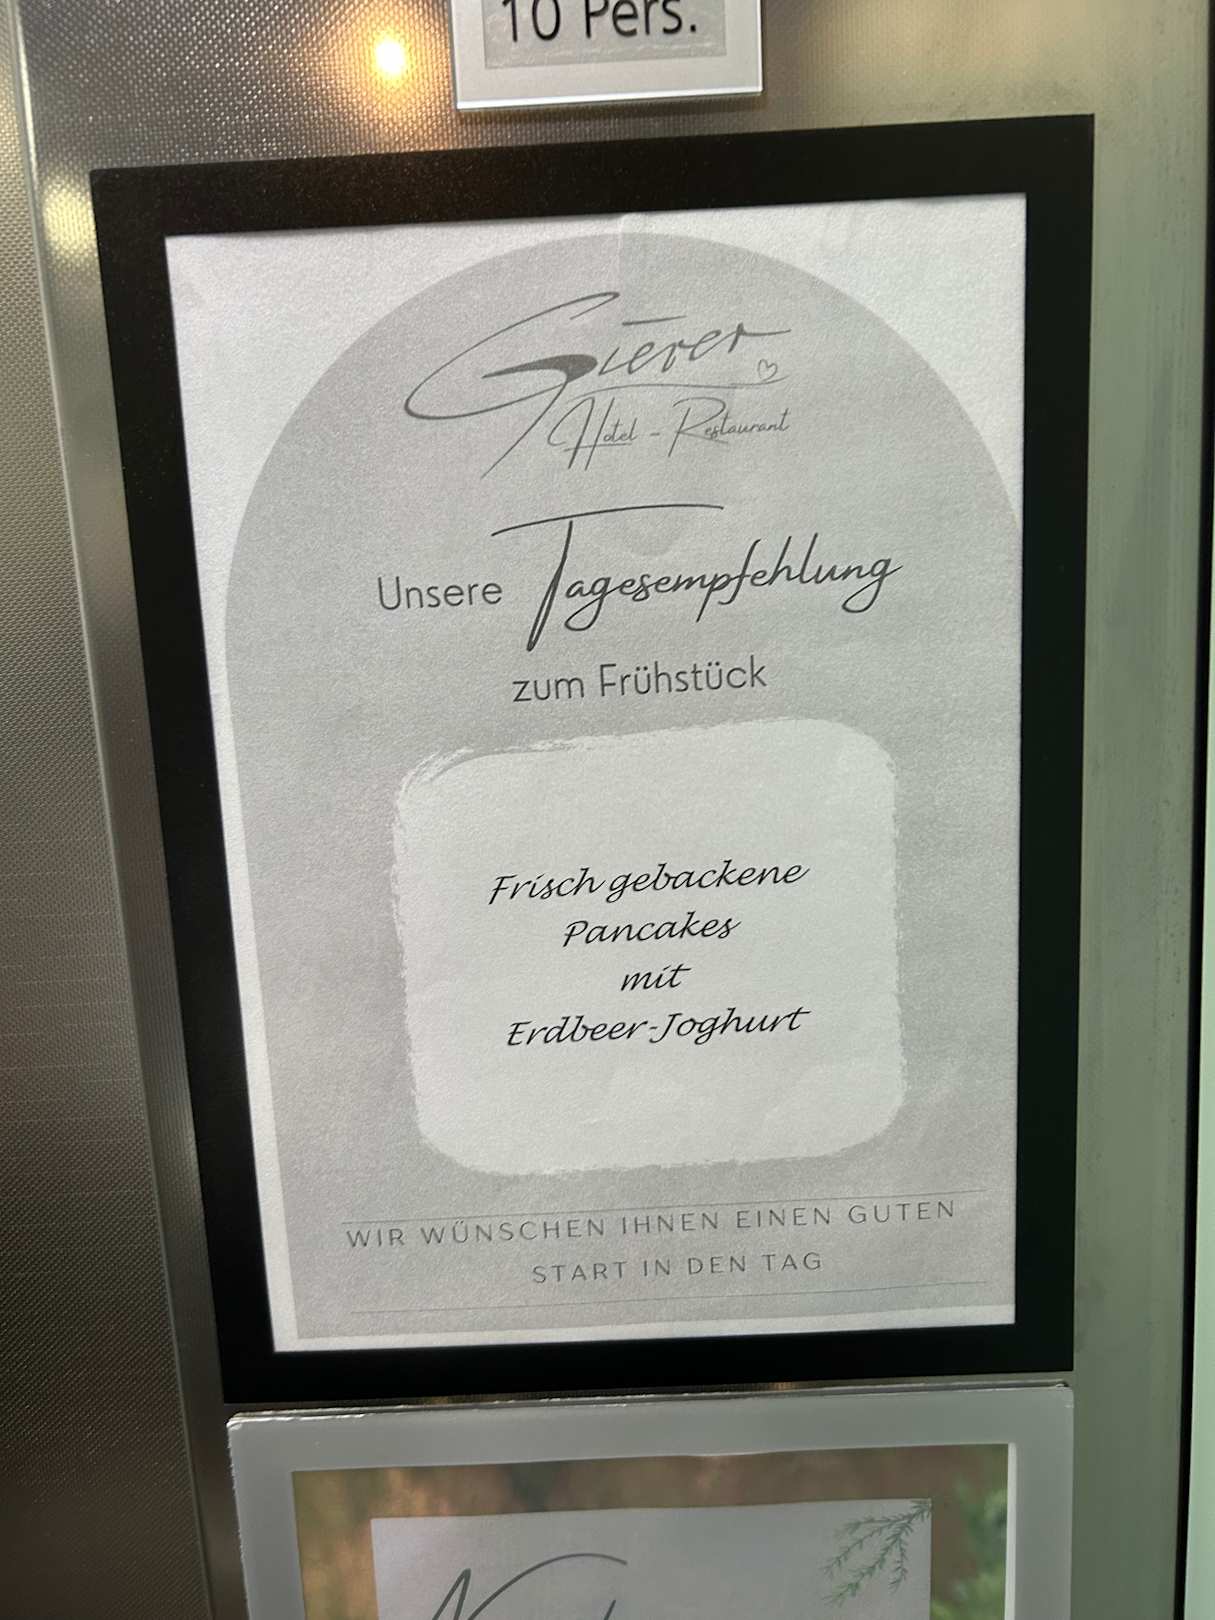 10 Pers.
Gierer
Hotel - Restaurant
Unsere Tagesempfehlung
zum Frühstück
Frisch gebackene
Pancakes
mit
Erdbeer-Joghurt
WIR WÜNSCHEN IHNEN EINEN GUTEN
START IN DEN TAG